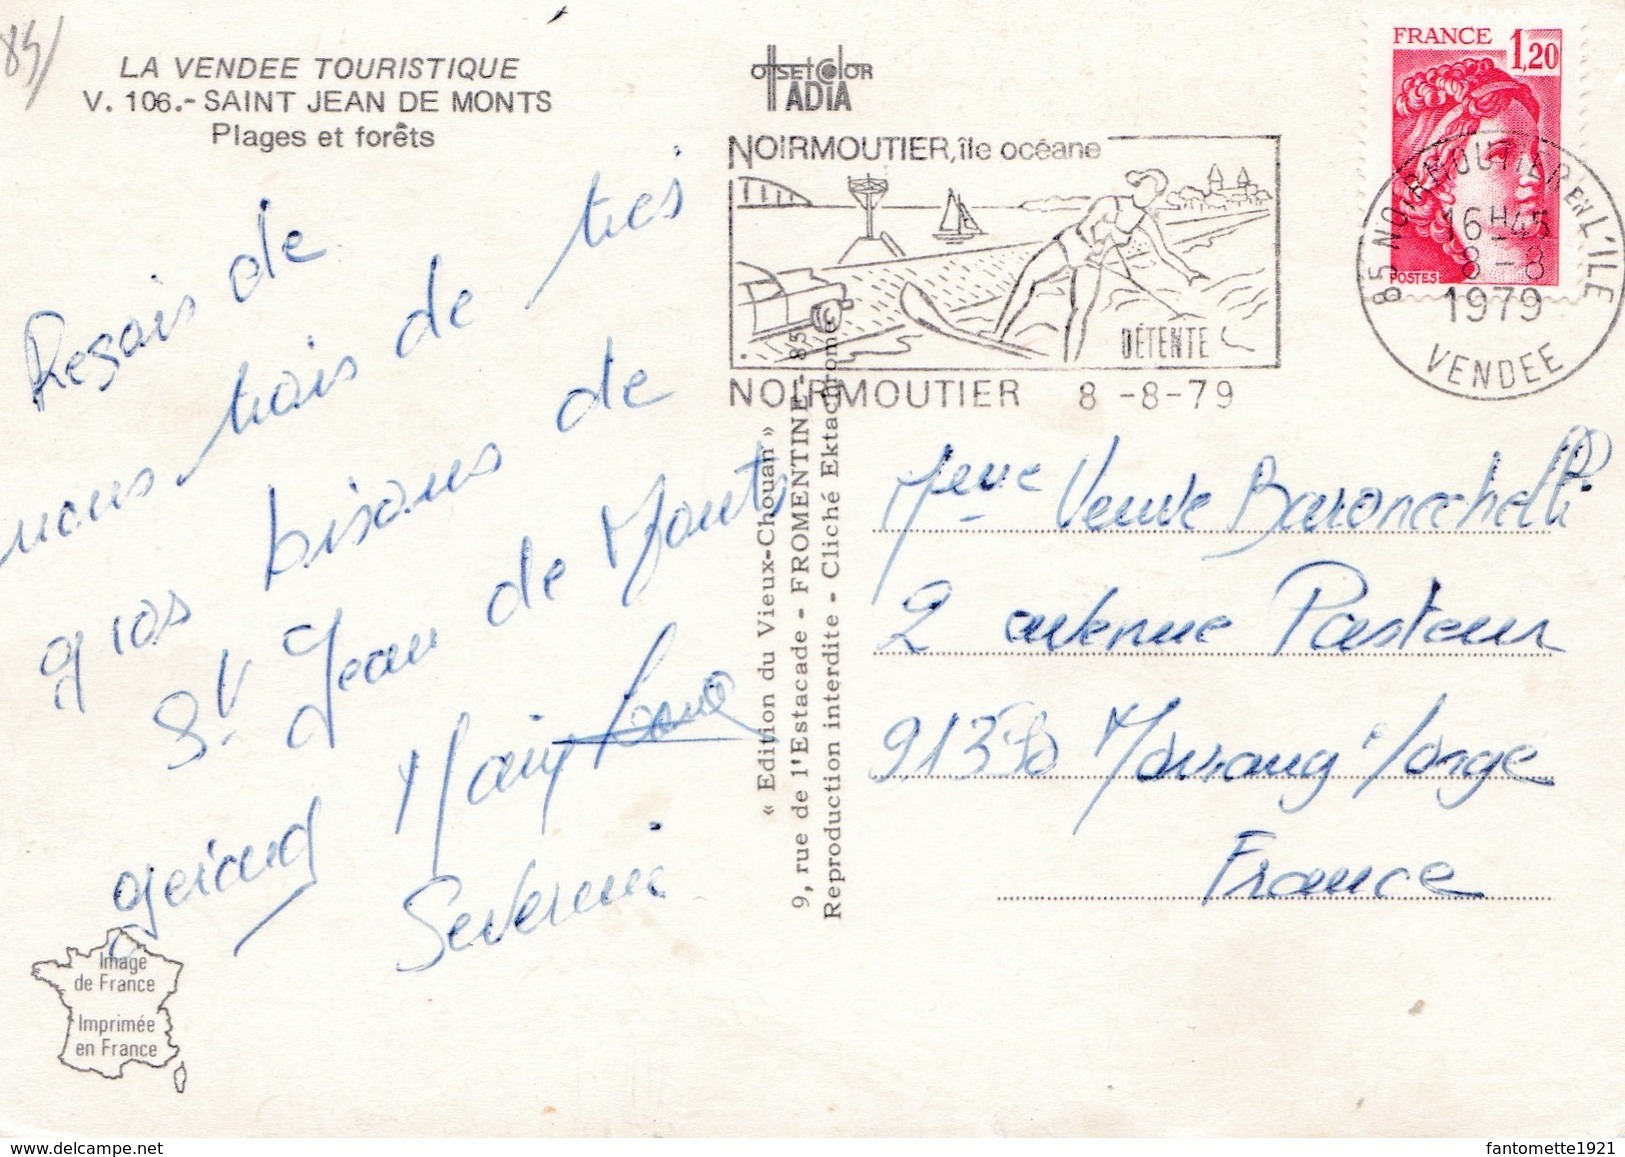 85/
LA VENDEE TOURISTIQUE
V. 106.- SAINT JEAN DE MONTS
Plages et forêts
OffsetColor
ADIA
FRANCE 1,20
POSTES
NOIRMOUTIER, île océane
DÉTENTE
NOIRMOUTIER 8 -8-79
85 NOIRMOUTIER EN L'ILE
16H45
8-8
1979
VENDEE
de
nous trois de très
gros bisous de
St Jean de Monts
Gérard
Severine
« Edition du Vieux-Chouan »
9, rue de l'Estacade - FROMENTINE - 85
Reproduction interdite - Cliché Ektachrome
Mme Veuve Baronechelli
2 avenue Pasteur
91390 Morsang s/orge
France
Image
de France
Imprimée
en France
www.delcampe.net
fantomette1921